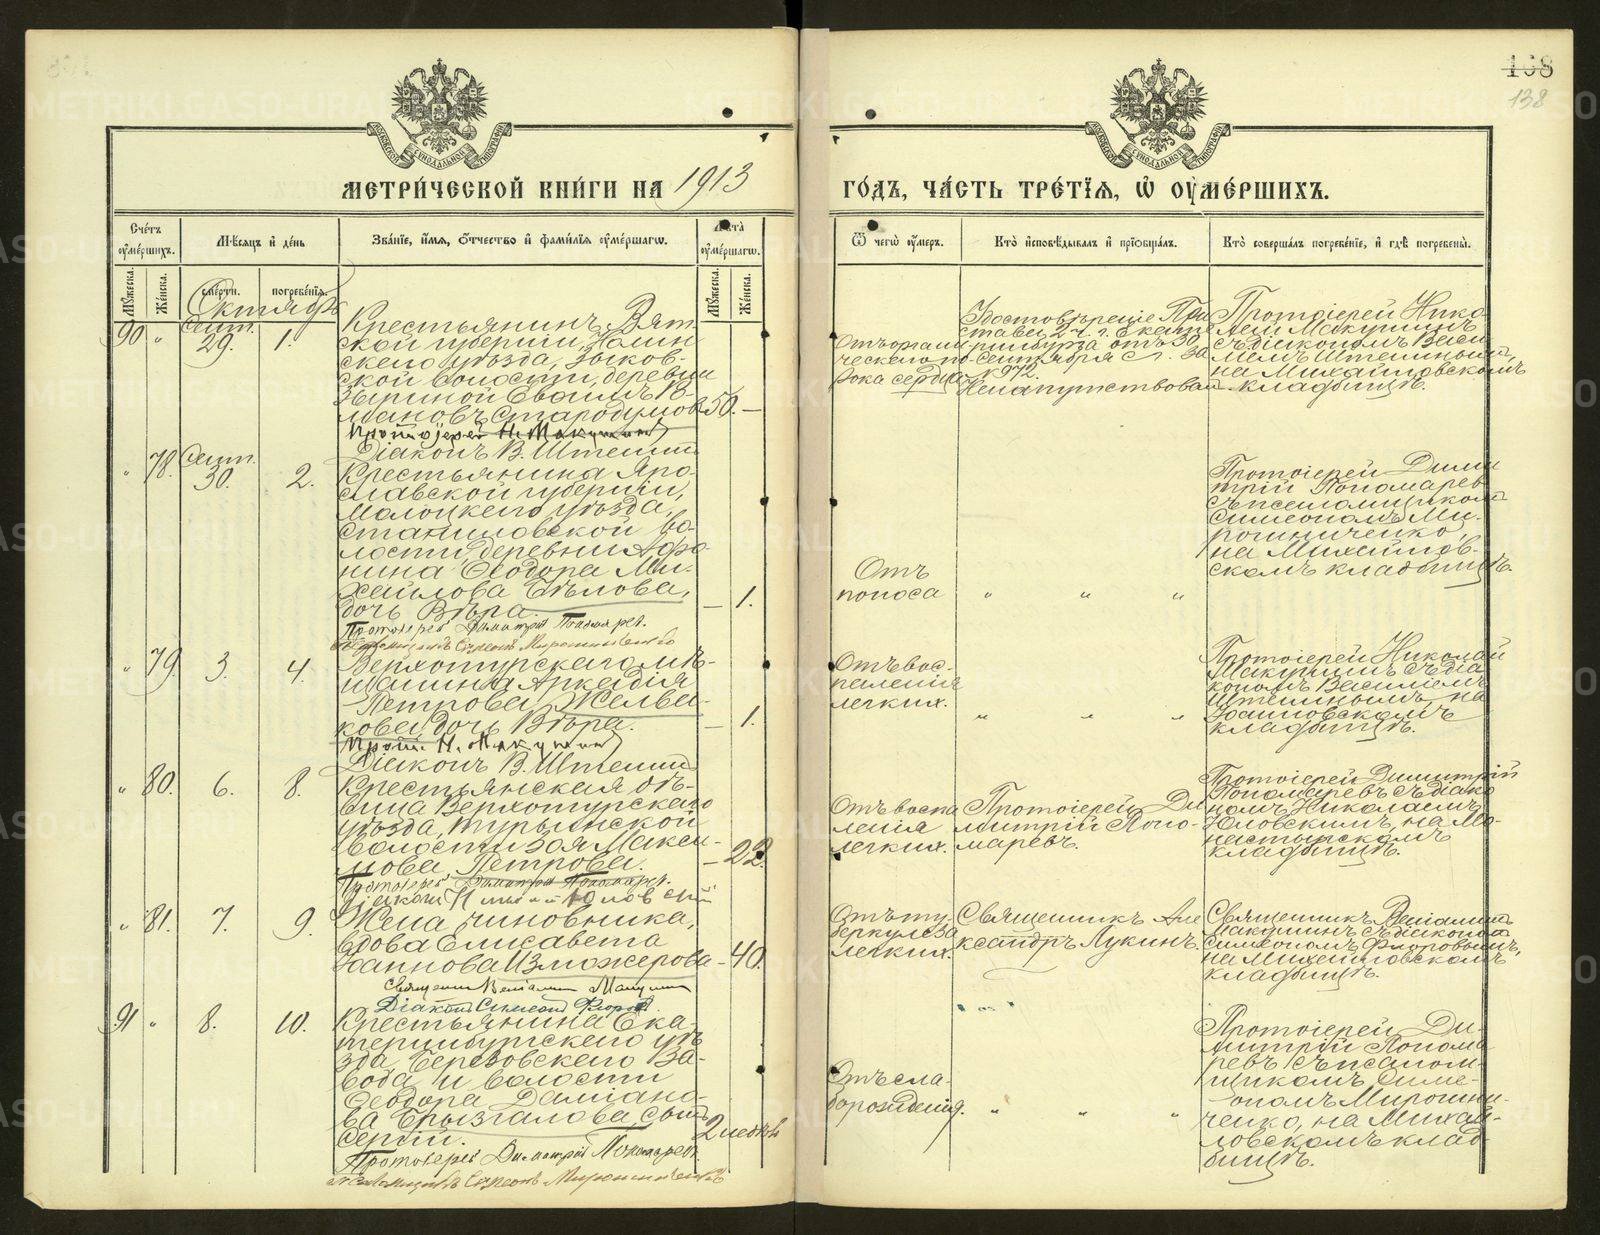 168
138
МЕТРИ́ЧЕСКОЙ КНИ́ГИ НА 1913
ГО́ДЪ, ЧА́СТЬ ТРЕ́ТІѦ, Ѡ҆ ОУ҆МЕ́РШИХЪ.
Сче́тъ оу҆ме́ршихъ.
Мѣ́сяцъ и҆ де́нь
Зва́нїе, и҆́мя, ѻ҆́тчество и҆ фами́лїя оу҆ме́ршагѡ.
Лѣ́та оу҆ме́ршагѡ.
Ѿ чегѡ̀ оу҆́меръ.
Кто̀ и҆сповѣ́дывалъ и҆ прїѡбща́лъ.
Кто̀ соверша́лъ погребе́нїе, и҆ гдѣ̀ погребены̀.
Мꙋ́жеска.
Же́нска.
сме́рти.
погребе́нїя.
Мꙋ́жеска.
Же́нска.
Октябрь
90 " Сент. 29. 1.
Крестьянинъ Вят-
ской губерніи, Нолин
скаго уѣзда, Зыков-
ской волости, деревни
Романовъ Стародумов
50. —
Протоіерей Н. Макушинъ
Діаконъ В. Штенинъ
Отъ органи
ческаго по
рока сердца
Удостовѣреніе При
става 2 ч. г. Екате
ринбурга отъ 30
Сентября с. г. за
№ 972.
Ненапутствован
Протоіерей Нико
лай Макушинъ
съ діакономъ Васи
ліемъ Штенинымъ,
на Михайловскомъ
кладбищѣ.
" 78. Сент. 30. 2.
Крестьянина Яро-
славской губерніи,
Мологскаго уѣзда,
Станиловской во-
лости, деревни Афо-
нина Ѳеодора Ми-
хайлова Бѣлова,
дочь Вѣра.
— 1.
Протоіерей Димитрій Пономарев.
Псаломщикъ Симеонъ Мирошниченко
Отъ
поноса
" " "
Протоіерей Дими
трій Пономарев
съ псаломщиком
Симеономъ Ми-
рошниченко,
на Михайлов-
скомъ кладбищѣ.
" 79. 3. 4.
Верхотурскаго мѣ-
щанина Аркадія
Петрова Желва-
кова, дочь Вѣра.
— 1.
Прот. Н. Макушинъ
Діаконъ В. Штенинъ
Отъ вос-
паленія
легких.
" " "
Протоіерей Николай
Макушинъ съ діа
кономъ Василіемъ
Штенинымъ, на
Іоанновскомъ
кладбищѣ.
" 80. 6. 8.
Крестьянская дѣ-
вица Верхотурскаго
уѣзда, Турьинской
волости Зоя Макси-
мова Петрова.
— 22.
Протоіерей Димитрій Пономарев.
Діаконъ Николай Юловскій
Отъ воспа
ленія
легких.
Протоіерей Ди
митрій Поно-
маревъ.
Протоіерей Димитрій
Пономаревъ съ діако
номъ Николаемъ
Юловскимъ, на Мо-
настырскомъ
кладбищѣ.
" 81. 7. 9.
Жена чиновника,
вдова Елисавета
Іоаннова Изможерова
— 40.
Священникъ Веніаминъ Макушинъ
Діаконъ Симеонъ Флоровъ
Отъ ту-
беркулеза
легких.
Священникъ Але
ксандръ Лукинъ.
Священникъ Веніаминъ
Макушинъ съ діаконом
Симеономъ Флоровымъ,
на Михайловскомъ
кладбищѣ.
91 " 8. 10.
Крестьянина Ека
теринбургскаго уѣ
зда Березовскаго За-
вода и волости
Ѳеодора Даміано-
ва Брызгалова, сынъ
Сергій.
2 недѣли
Протоіерей Димитрій Пономарев.
Псаломщикъ Симеонъ Мирошниченко
Отъ сла-
борожденія.
" " "
Протоіерей Ди-
митрій Понома
ревъ съ псалом-
щикомъ Симе-
ономъ Мирошни-
ченко, на Михай-
ловскомъ клад-
бищѣ.